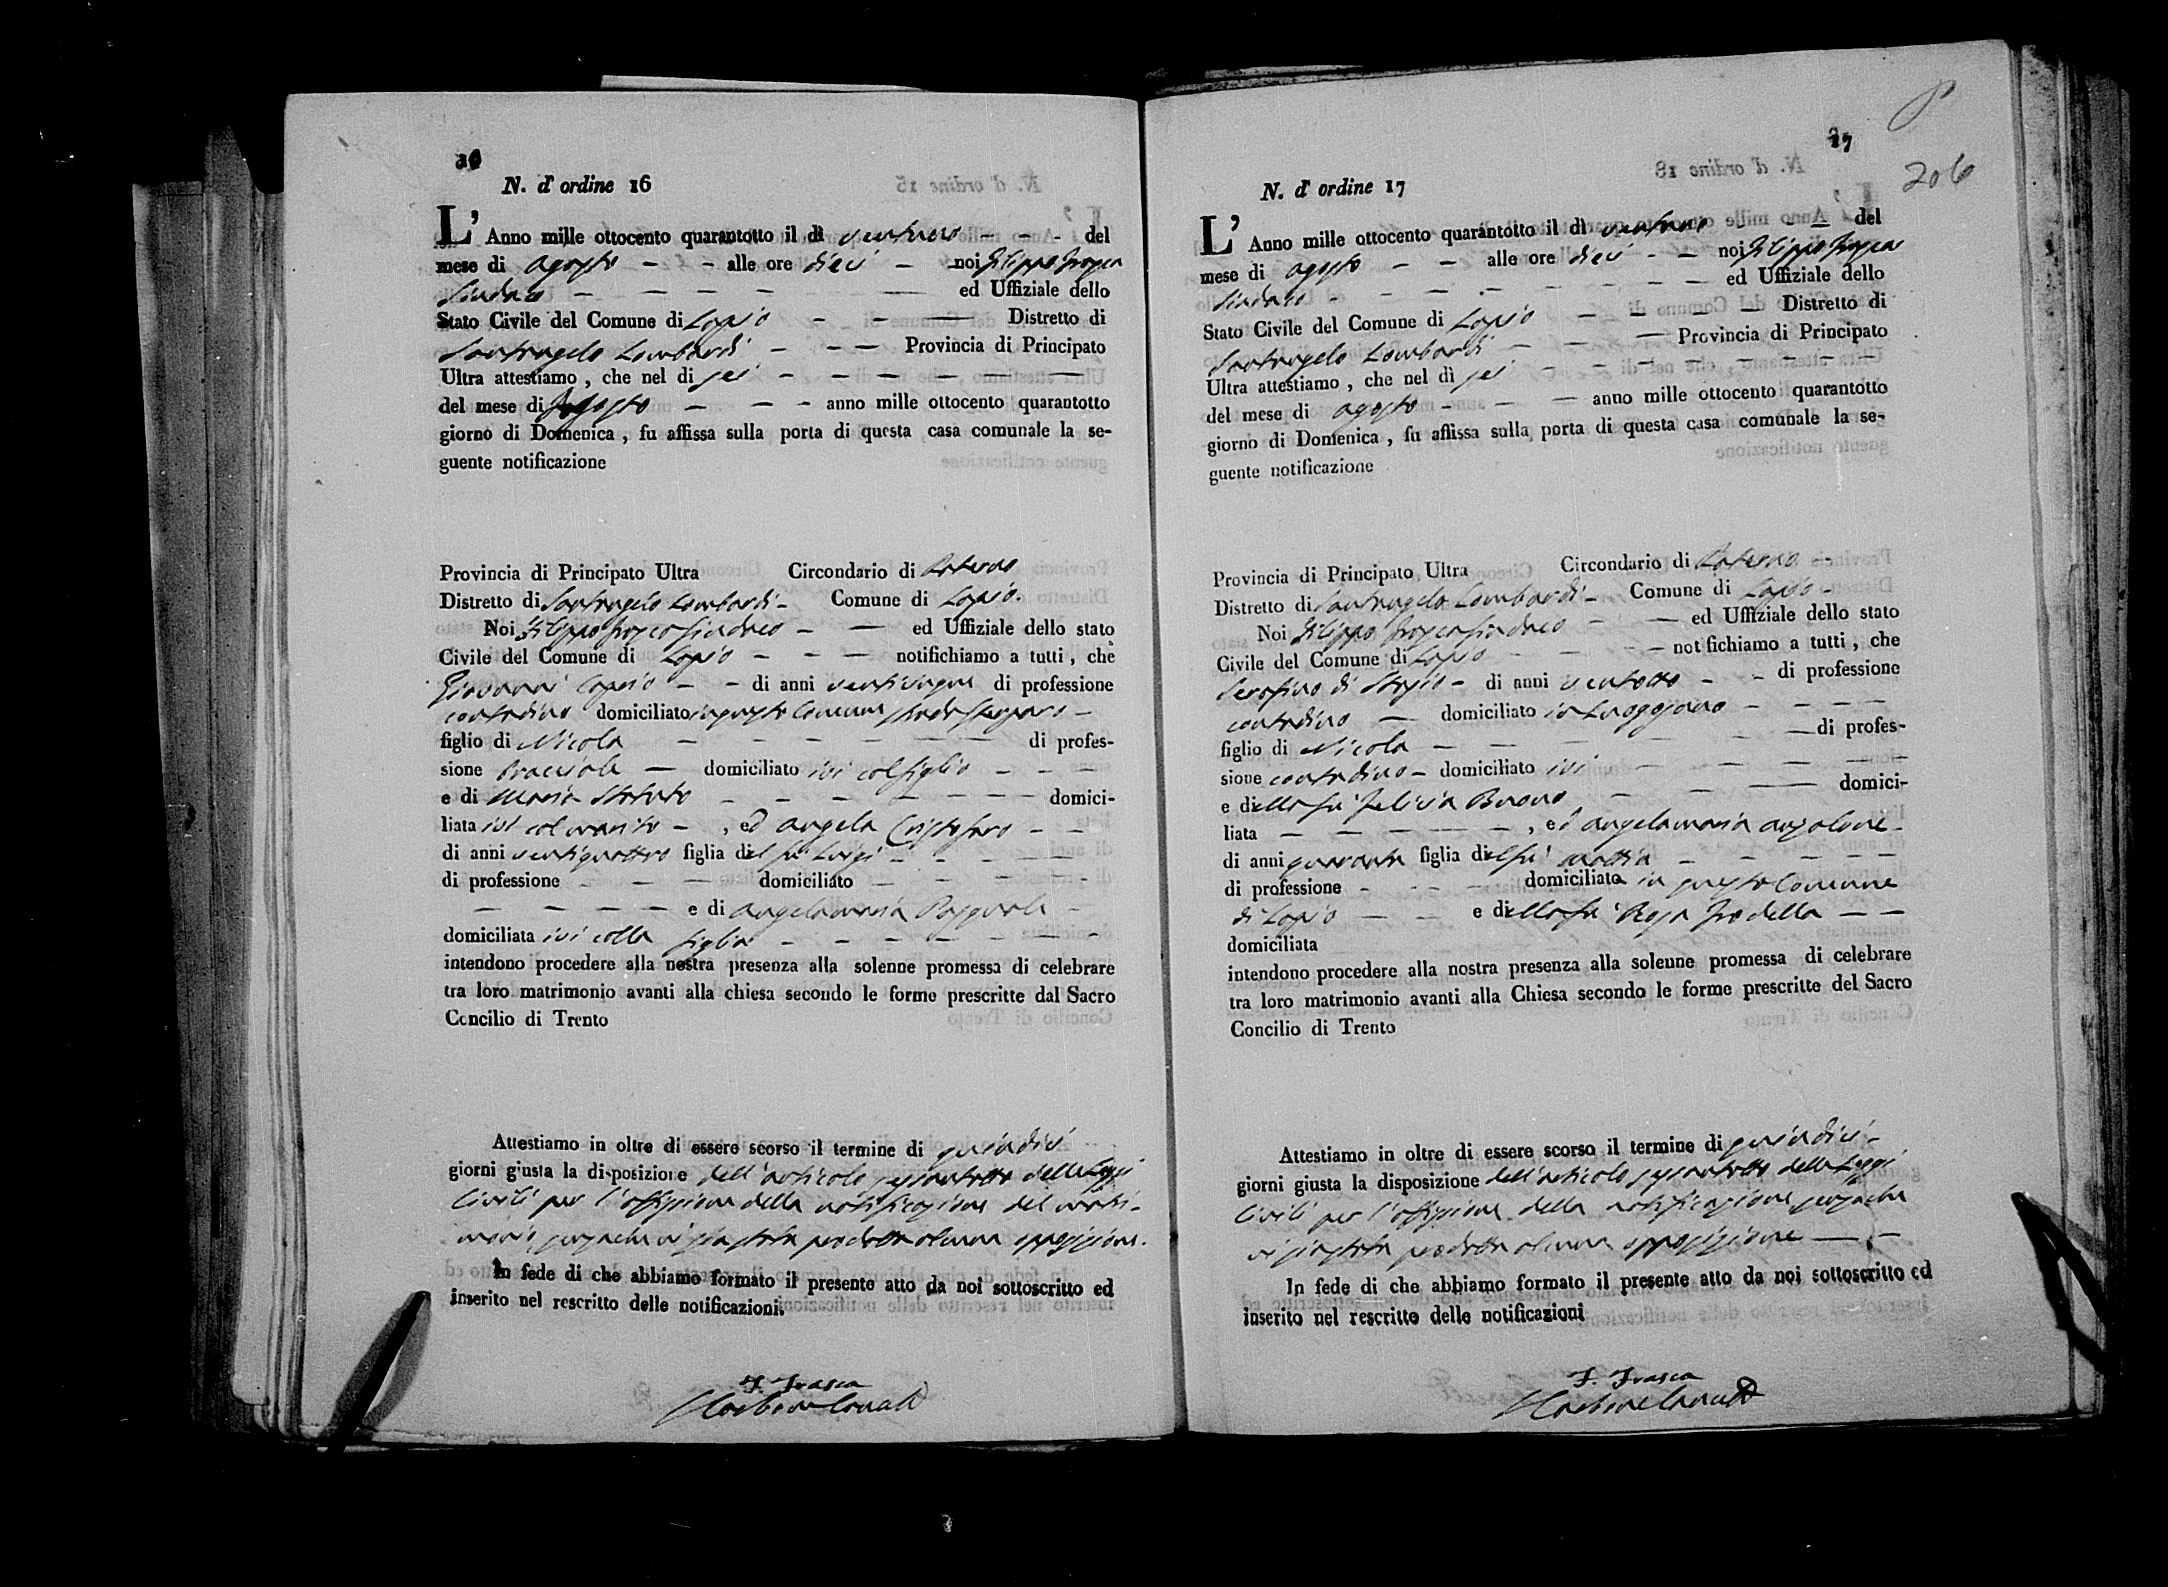 16
N. d' ordine 16
L' Anno mille ottocento quarantotto il dì ventuno - - - del
mese di agosto - - alle ore dieci - - noi Filippo Frasca
Sindaco - - - - - ed Uffiziale dello
Stato Civile del Comune di Lapio - - - Distretto di
Santangelo Lombardi - - - Provincia di Principato
Ultra attestiamo , che nel di sei - - - - - -
del mese di Agosto - - - anno mille ottocento quarantotto
giorno di Domenica , fu affissa sulla porta di questa casa comunale la se-
guente notificazione
Provincia di Principato Ultra Circondario di Paterno
Distretto di Santangelo Lombardi - Comune di Lapio.
Noi Filippo Frasca Sindaco - - ed Uffiziale dello stato
Civile del Comune di Lapio - - - notifichiamo a tutti , che
Giovanni Capsio - - di anni venticinque di professione
contadino domiciliato in questo Comune strada -
figlio di Nicola - - - - - - di profes-
sione Bracciale - domiciliato ivi col figlio - - -
e di Maria - - - - - - domici-
liata ivi col marito - , ed Angela Cristofaro - -
di anni ventiquattro figlia del fu Luigi - - - - -
di professione - - - domiciliato - - - - -
- - - - e di Angelamaria Pasquale -
domiciliata ivi colla figlia - - - - - - -
intendono procedere alla nostra presenza alla solenne promessa di celebrare
tra loro matrimonio avanti alla chiesa secondo le forme prescritte dal Sacro
Concilio di Trento
Attestiamo in oltre di essere scorso il termine di quindici
giorni giusta la disposizione dell'articolo sessantotto delle Leggi
Civili per l'affissione della notificazione del matri-
monio, senzache vi sia stata prodotta alcuna opposizione.
In fede di che abbiamo formato il presente atto da noi sottoscritto ed
inserito nel rescritto delle notificazioni.
F. Frasca
17
206
N. d' ordine 17
L' Anno mille ottocento quarantotto il dì ventuno - - - del
mese di agosto - - alle ore dieci - - noi Filippo Frasca
Sindaco - - - - - - - ed Uffiziale dello
Stato Civile del Comune di Lapio - - - - Distretto di
Santangelo Lombardi - - - Provincia di Principato
Ultra attestiamo , che nel dì sei - - - - - - -
del mese di agosto - - - anno mille ottocento quarantotto
giorno di Domenica , fu affissa sulla porta di questa casa comunale la se-
guente notificazione
Provincia di Principato Ultra Circondario di Paterno -
Distretto di Santangelo Lombardi - Comune di Lapio -
Noi Filippo Frasca Sindaco - - ed Uffiziale dello stato
Civile del Comune di Lapio - - - - notifichiamo a tutti , che
Serafino di Stasio - di anni ventotto - - di professione
contadino - domiciliato in Luogosano - - - -
figlio di Nicola - - - - - di profes-
sione contadino - domiciliato ivi - - - - -
e della fu Felicia Buono - - - domici-
liata - - - - - , ed Angelamaria Anzalone -
di anni quaranta figlia del fu Mattia - - - - -
di professione - - - - domiciliata in questo Comune
di Lapio - - e della fu Rosa - -
domiciliata
intendono procedere alla nostra presenza alla solenne promessa di celebrare
tra loro matrimonio avanti alla Chiesa secondo le forme prescritte del Sacro
Concilio di Trento
Attestiamo in oltre di essere scorso il termine di quindici -
giorni giusta la disposizione dell'articolo sessantotto delle Leggi
Civili per l'affissione della notificazione senzache
vi sia stata prodotta alcuna opposizione - -
In fede di che abbiamo formato il presente atto da noi sottoscritto ed
inserito nel rescritto delle notificazioni
F. Frasca